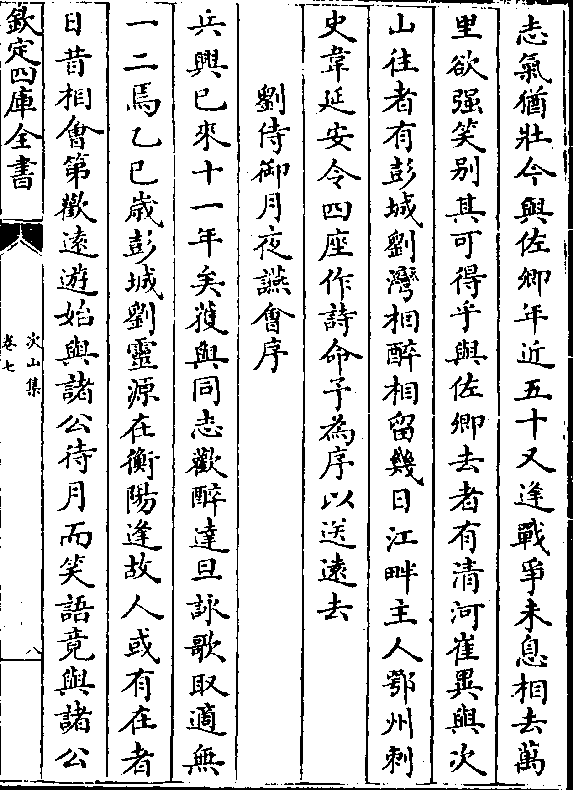 志氣猶壯今與佐卿年近五十又逢戰爭未息相去萬
里欲强笑别其可得乎與佐卿去者有清河崔異與次
山往者有彭城劉灣相醉相留幾日江畔主人鄂州刺
史韋延安令四座作詩命予為序以送遠去
劉侍御月夜讌會序
兵興已來十一年矣獲與同志歡醉達旦詠歌取適無
一二焉乙巳歳彭城劉靈源在衡陽逢故人或有在者
日昔相會第歡遠遊始與諸公待月而笑語竟與諸公
欽定四庫全書
次山集
卷七
八